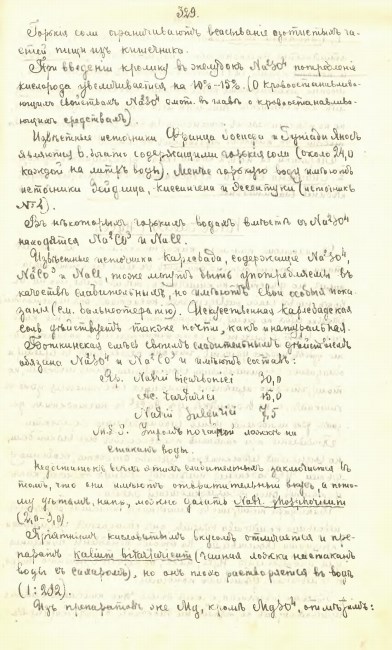 329.
Горькія соли ограничиваютъ всасываніе азотистыхъ ча-
стей пищи изъ кишечника.
При введеніи кролику въ желудокъ Na²SO⁴ потребленіе
кислорода увеличивается на 10%-15%. (О кровоостанавлива-
ющихъ свойствахъ Na²SO⁴ смот. въ главѣ о кровоостанавливаю-
ющихъ средствахъ).
Извѣстные источники Франца Іосифа и Гуніади Яносъ
являются богато содержащими горькія соли (около 24,0
каждой на литръ воды). Менѣе горькую воду имѣютъ
источники Зейдлица, Киссингена и Ессентуки (источникъ
№ 4).
Въ нѣкоторыхъ горькихъ водахъ, вмѣстѣ съ Na²SO⁴
находятся Na²CO³ и NaCl.
Извѣстные источники Карлсбада, содержащіе Na²SO⁴,
Na²CO³ и NaCl, тоже могутъ быть употребляемы въ
качествѣ слабительныхъ, но имѣютъ свои особыя пока-
занія (см. бальнеотерапію). Искусственная карлсбадская
соль дѣйствуетъ также почти, какъ натуральная.
Боткинская смѣсь своимъ слабительнымъ дѣйствіемъ
обязана Na²SO⁴ и Na²CO³ и имѣетъ составъ:
Rp. Natrii bicarbonici 30,0
Ac. Tartarici 15,0
Natrii Sulfurici 7,5
M.D.S. Утромъ по чайной ложкѣ на
стаканъ воды.
Недостатокъ всѣхъ этихъ слабительныхъ заключается въ
томъ, что они имѣютъ отвратительный вкусъ, а пото-
му дѣтямъ, напр., можно давать Natr. phosphoricum
(2,0-3,0).
Пріятнымъ кисловатымъ вкусомъ отличается и пре-
паратъ kalium bitartaricum (чайная ложка на стаканъ
воды съ сахаромъ), но онъ плохо растворяется въ водѣ
(1:292).
Изъ препаратовъ же Mg, кромѣ MgSO⁴, отмѣтимъ: